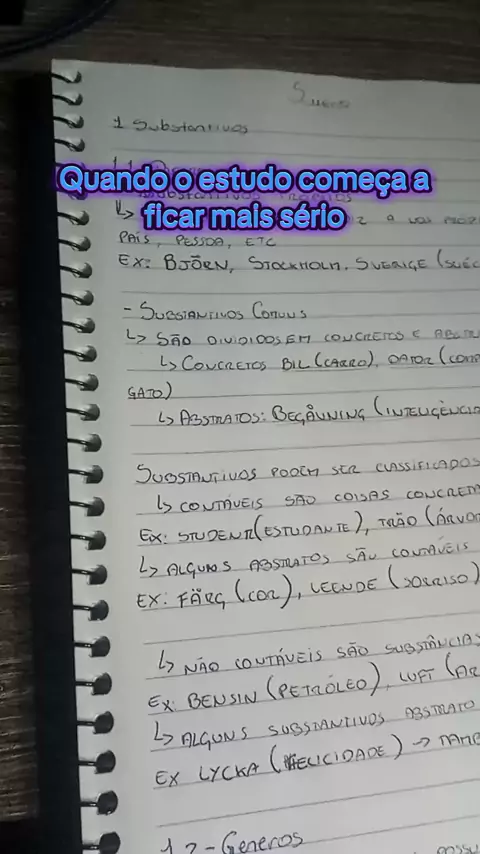 Sueco
1 Substantivos
Quando o estudo começa a
ficar mais sério
PAÍS, PESSOA, ETC
EX: BJÖRN, STOCKHOLM, SVERIGE (SUÉC
- SUBSTANTIVOS COMUNS
↳ SÃO DIVIDIDOS EM CONCRETOS E ABSTR
↳ CONCRETOS BIL (CARRO), DATOR (COMP
GATO)
↳ ABSTRATOS: BEGÅVNING (INTELIGÊNCIA
SUBSTANTIVOS PODEM SER CLASSIFICADOS
↳ CONTÁVEIS SÃO COISAS CONCRETA
EX: STUDENT (ESTUDANTE), TRÄD (ÁRVOR
↳ ALGUNS ABSTRATOS SÃO CONTÁVEIS
EX: FÄRG (COR), LEENDE (SORRISO)
↳ NÃO CONTÁVEIS SÃO SUBSTÂNCIAS
EX: BENSIN (PETRÓLEO), LUFT (AR
↳ ALGUNS SUBSTANTIVOS ABSTRATO
EX LYCKA (FELICIDADE) → TAMB
1.2 - Generos